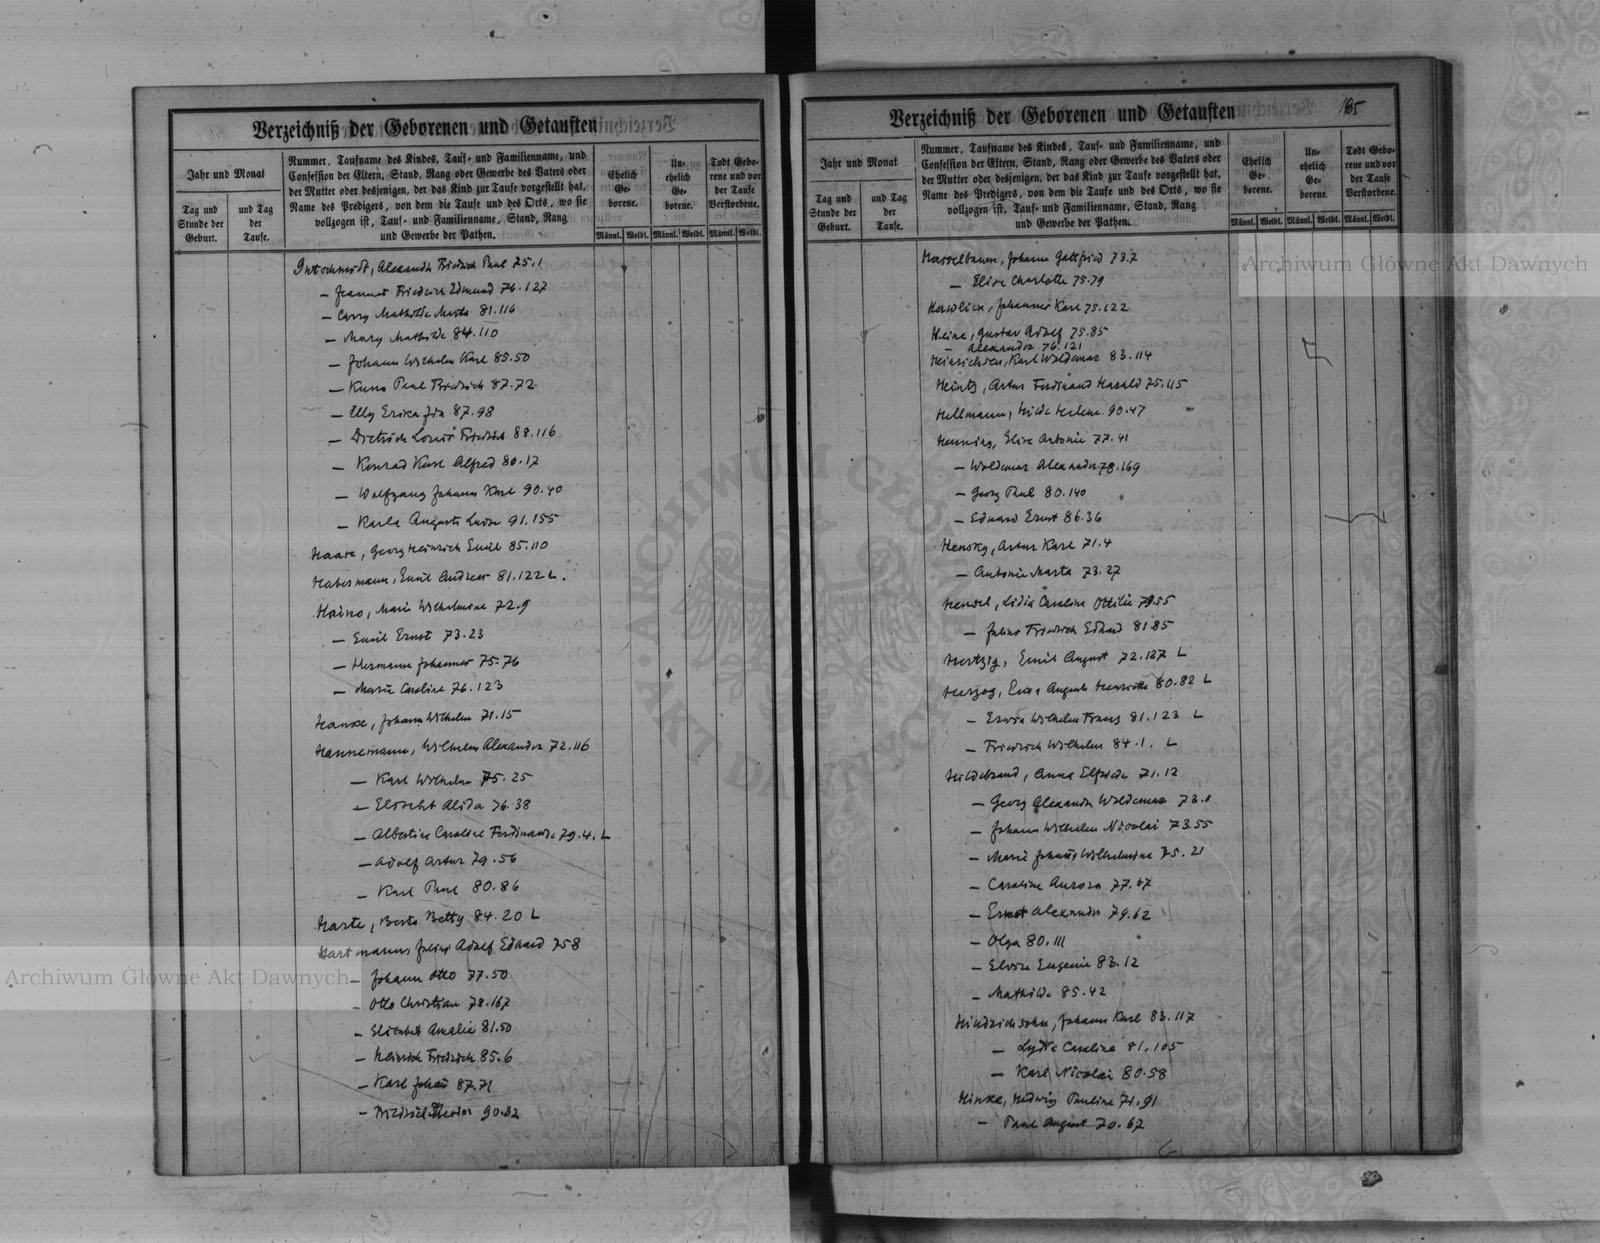 Verzeichniß der Geborenen und Getauften
Jahr und Monat
Tag und Stunde der Geburt.
und Tag der Taufe.
Nummer, Taufname des Kindes, Tauf- und Familienname, und
Confession der Eltern, Stand, Rang oder Gewerbe des Vaters oder
der Mutter oder desjenigen, der das Kind zur Taufe vorgestellt hat,
Name des Predigers, von dem die Taufe und des Orts, wo sie
vollzogen ist, Tauf- und Familienname, Stand, Rang
und Gewerbe der Pathen.
Ehelich Ge- borene.
Un- ehelich Ge- borene.
Todt Gebo- rene und vor der Taufe Verstorbene.
Männl. Weibl. Männl. Weibl. Männl. Weibl.
Gutschmidt, Alexander Friedrich Paul 75.1
– Jeannot Friedrich Edmund 76.127
– Mathilde 81.116
– Mary Mathilde 84.110
– Johann Wilhelm Karl 85.50
– Kuno Paul Friedrich 87.72
– Elly Erika Ida 87.98
– Dietrich Louis Friedrich 88.116
– Konrad Karl Alfred 80.17
– Wolfgang Johann Karl 90.40
– Karla Auguste Luise 91.155
Haare, Georg Heinrich Emil 85.110
Habermann, Emil Andreas 81.122 L.
Haino, Marie Wilhelmine 72.9
– Emil Ernst 73.23
– Hermann Johannes 75.76
– Marie Caroline 76.123
Hanke, Johann Wilhelm 71.15
Hannemann, Wilhelm Alexander 72.116
– Karl Wilhelm 75.25
– Elisabet Alida 76.38
– Albertine Caroline Ferdinande 79.4. L
– Adolf Artur 79.56
– Karl Paul 80.86
Harte, Berta Betty 84.20 L
Hartmann, Julius Adolf Eduard 75 8
– Johann Otto 77.50
– Otto Christian 78.167
– Elisabet Amalie 81.50
– Heinrich Friedrich 85.6
– Karl Johann 87.71
– Friedrich Theodor 90.32
Verzeichniß der Geborenen und Getauften
185
Jahr und Monat
Tag und Stunde der Geburt.
und Tag der Taufe.
Nummer, Taufname des Kindes, Tauf- und Familienname, und
Confession der Eltern, Stand, Rang oder Gewerbe des Vaters oder
der Mutter oder desjenigen, der das Kind zur Taufe vorgestellt hat,
Name des Predigers, von dem die Taufe und des Orts, wo sie
vollzogen ist, Tauf- und Familienname, Stand, Rang
und Gewerbe der Pathen.
Ehelich Ge- borene.
Un- ehelich Ge- borene.
Todt Gebo- rene und vor der Taufe Verstorbene.
Männl. Weibl. Männl. Weibl. Männl. Weibl.
Hasselbaum, Johann Gottfried 73.7
– Elise Charlotte 75.79
Hawlick, Johannes Karl 75.122
Heine, Gustav Adolf 75.85
– Alexander 76.121
Heinrichsen, Karl Woldemar 83.114
Heintz, Artur Ferdinand Harald 75.115
Hellmann, Hilda Helene 90.47
Henning, Elise Antonie 77.41
– Woldemar Alexander 78.169
– Georg Paul 80.140
– Eduard Ernst 86.36
Hensky, Artur Karl 71.4
– Antonie Marta 73.27
Hensel, Lidia Caroline Ottilie 79.55
– Julius Friedrich Eduard 81 85
Hertzig, Emil August 72.127 L
Herzog, Auguste Henriette 80.82 L
– Erwin Wilhelm Franz 81.123 L
– Friedrich Wilhelm 84.1. L
Hildebrand, Anna Elfriede 71.12
– Georg Alexander Woldemar 73.1
– Johann Wilhelm Nicolai 73.55
– Marie Johanna Wilhelmine 75.21
– Caroline Aurora 77.67
– Ernst Alexander 79.62
– Olga 80.111
– Elvire Eugenie 83.12
– Mathilde 85.42
Hindrichsohn, Johann Karl 83.117
– Lydia Caroline 81.105
– Karl Nicolai 80.58
Hinke, Hedwig Pauline 71.91
– Paul August 70.67
Archiwum Główne Akt Dawnych
Archiwum Główne Akt Dawnych
ARCHIWUM GŁÓWNE AKT DAWNYCH